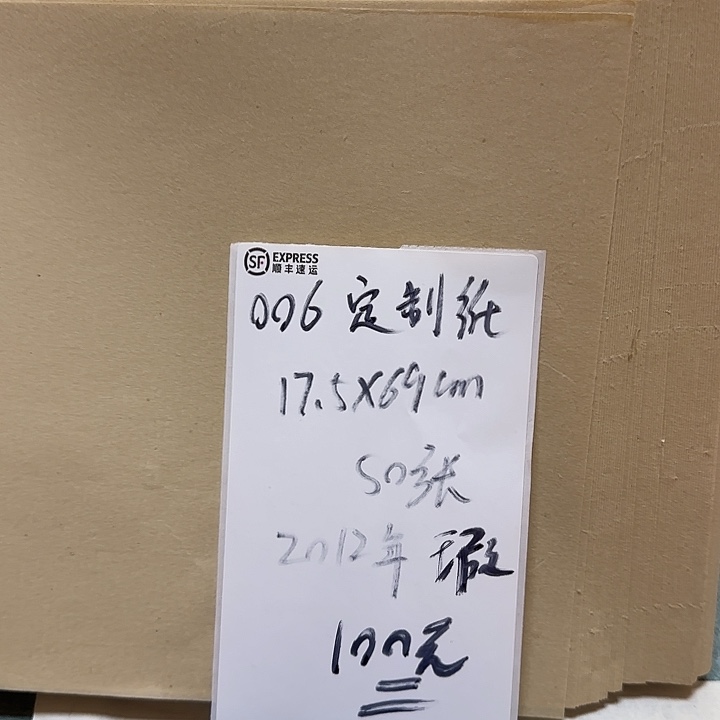 SF EXPRESS
顺丰速运
006 定制纸
17.5X69cm
50张
2012年 瑕
100元